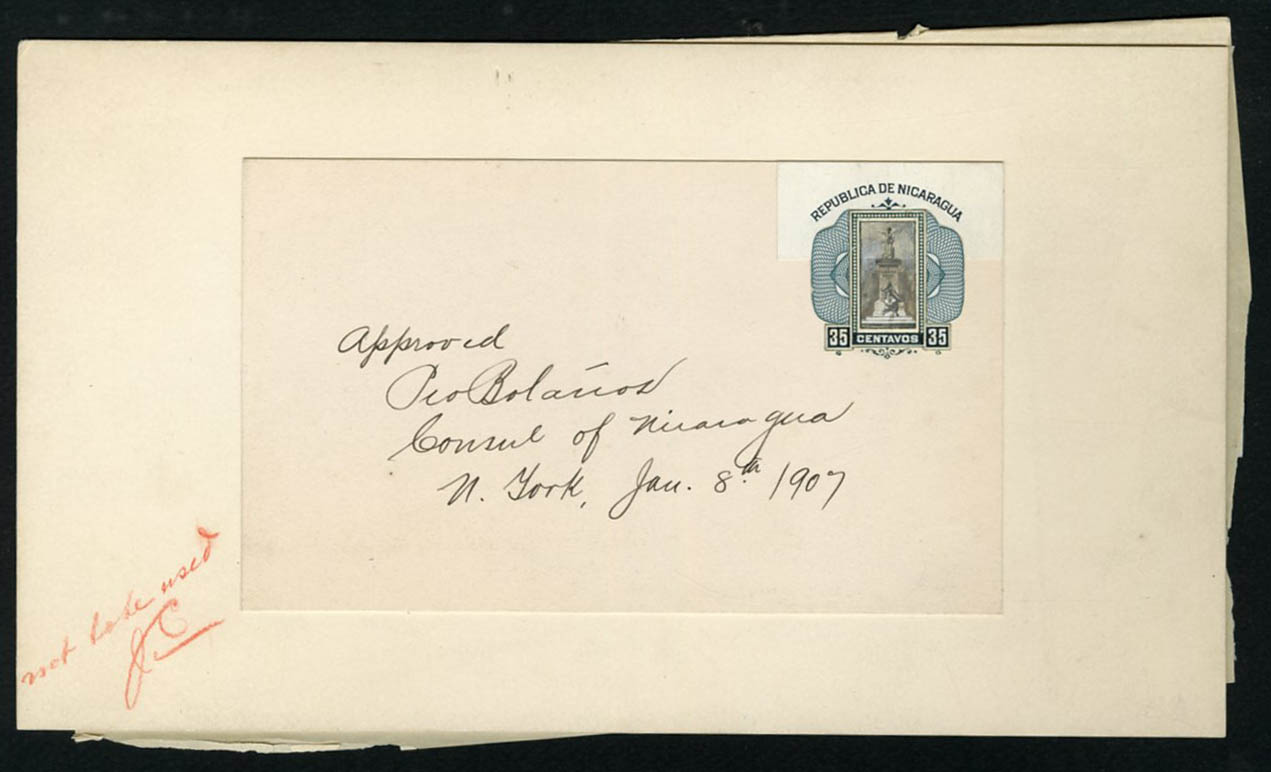 REPUBLICA DE NICARAGUA
35 CENTAVOS 35
Approved
Pio Bolaños
Consul of Nicaragua
N. York, Jan. 8th 1907
not to be used
JC